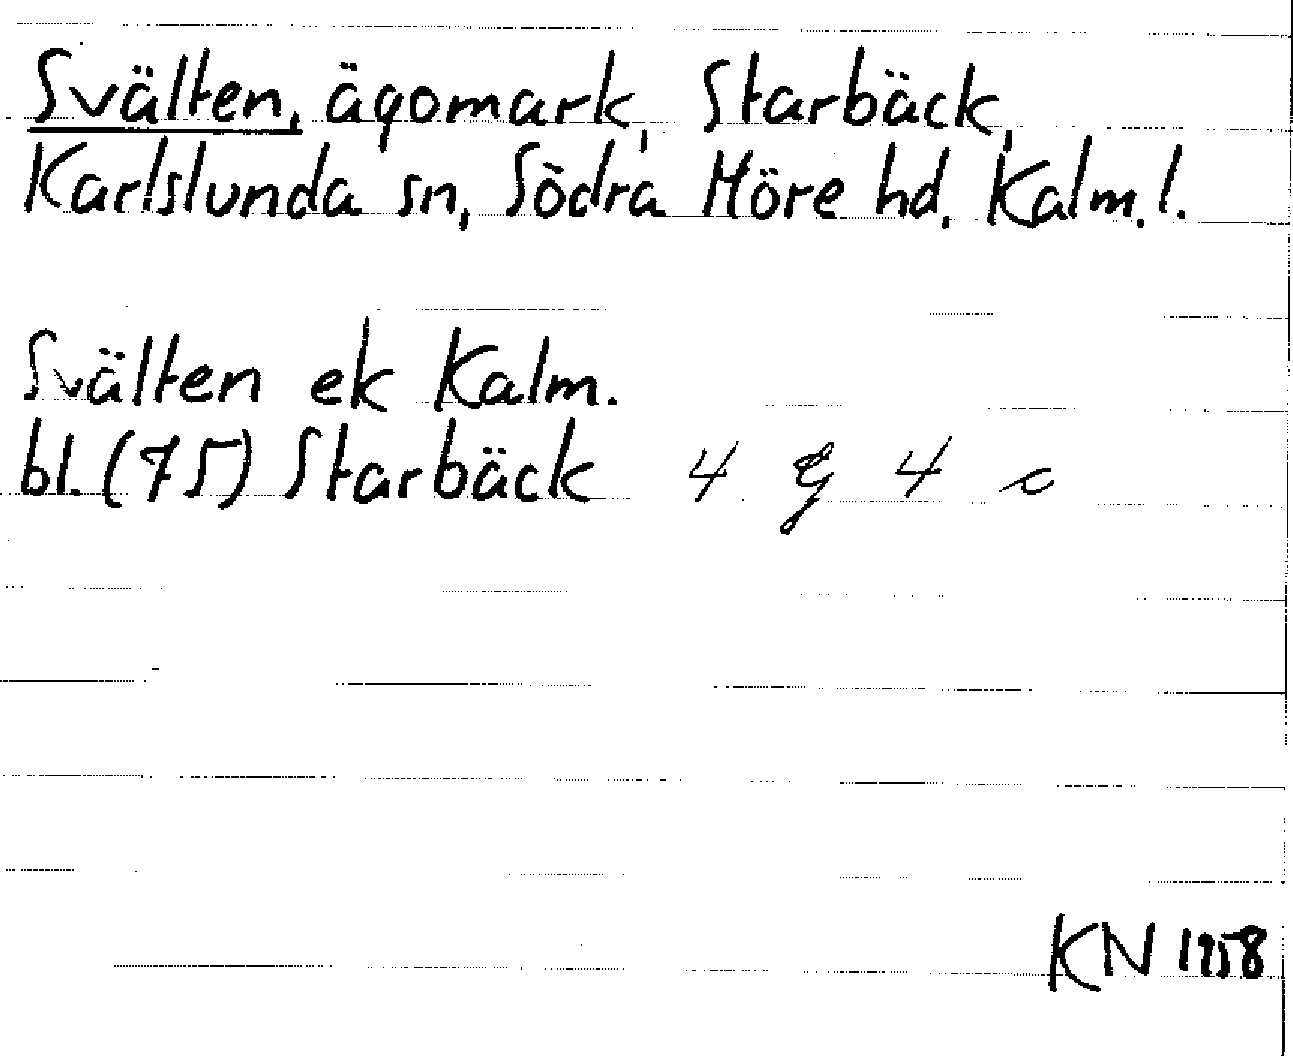 Svälten, ägomark, Starbäck,
Karlslunda sn, Södra Möre hd, Kalm. l.
Svälten ek Kalm.
bl. (75) Starbäck 4 G 4 c
KN 1958